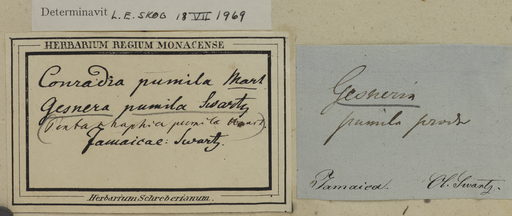 Determinavit L. E. SKOG 18 VII 1969
HERBARIUM REGIUM MONACENSE
Conradia pumila Mart
Gesnera pumila Swartz
(Pentarhaphia pumila
Jamaicae: Swartz.
Herbarium Schreberianum.
Gesneria
pumila prodr
Jamaica. Ol. Swartz.